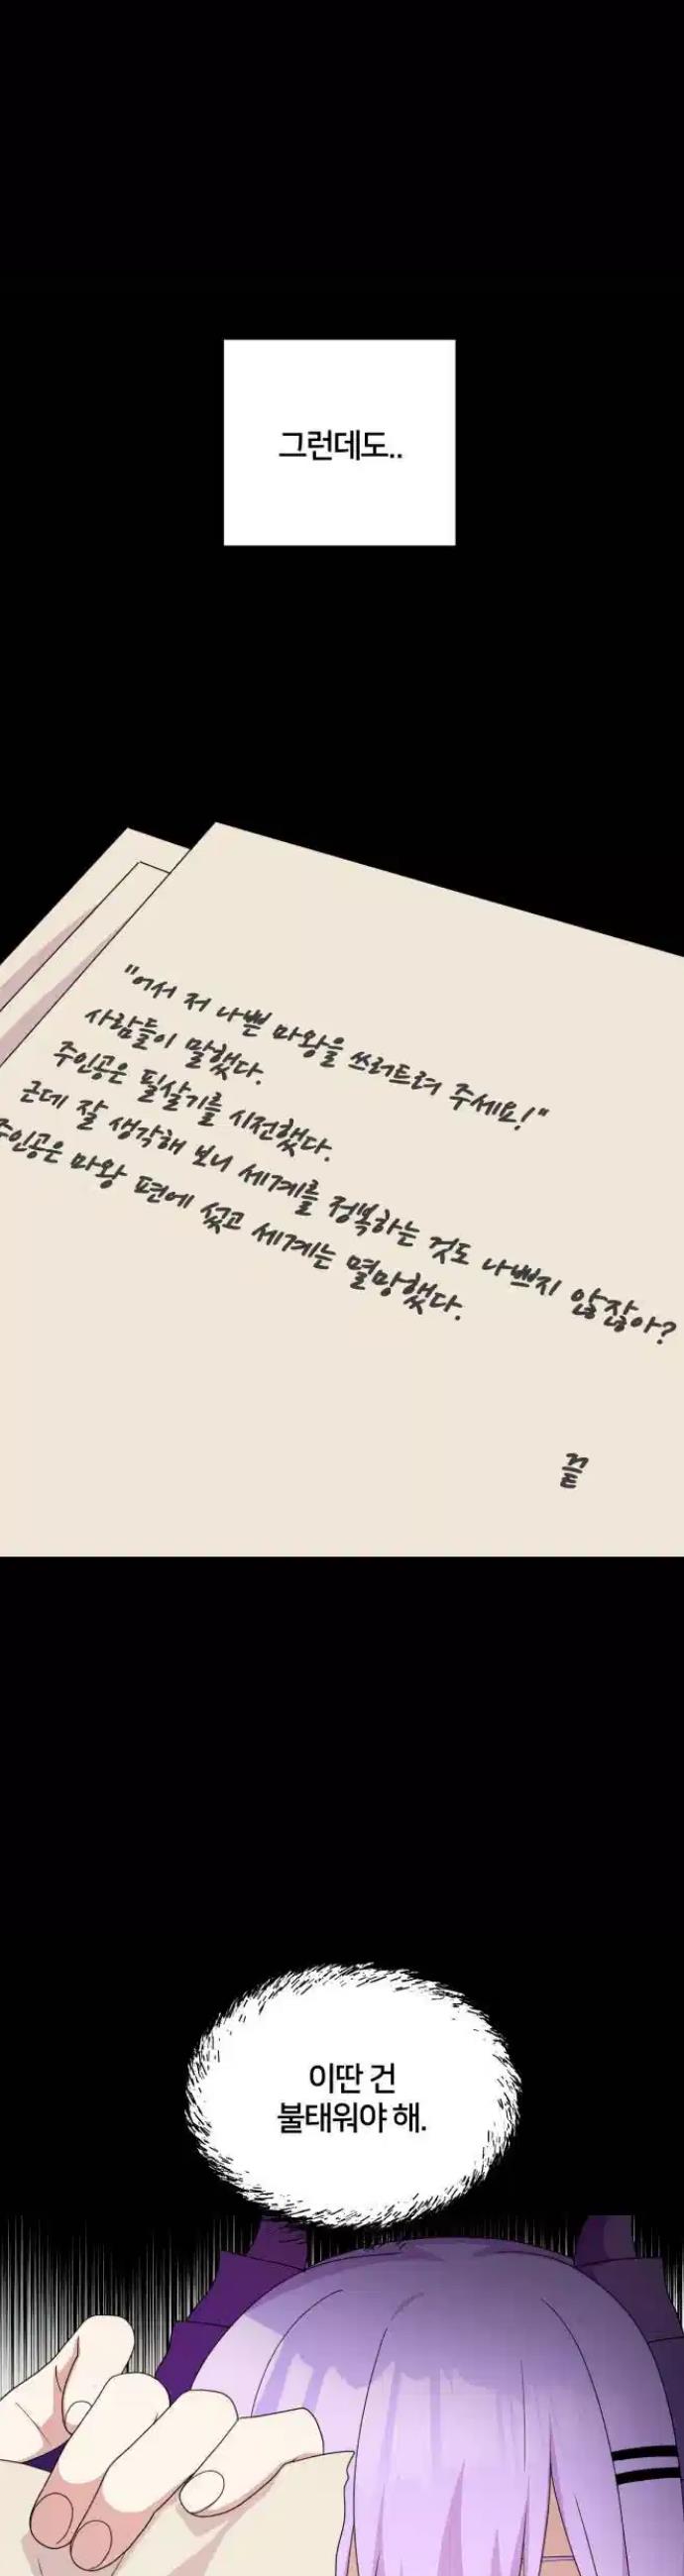 그런데도..
"어서 저 나쁜 마왕을 쓰러트려 주세요!"
사람들이 말했다.
주인공은 필살기를 시전했다.
근데 잘 생각해 보니 세계를 정복하는 것도 나쁘지 않잖아?
주인공은 마왕 편에 섰고 세계는 멸망했다.
끝
이딴 건
불태워야 해.